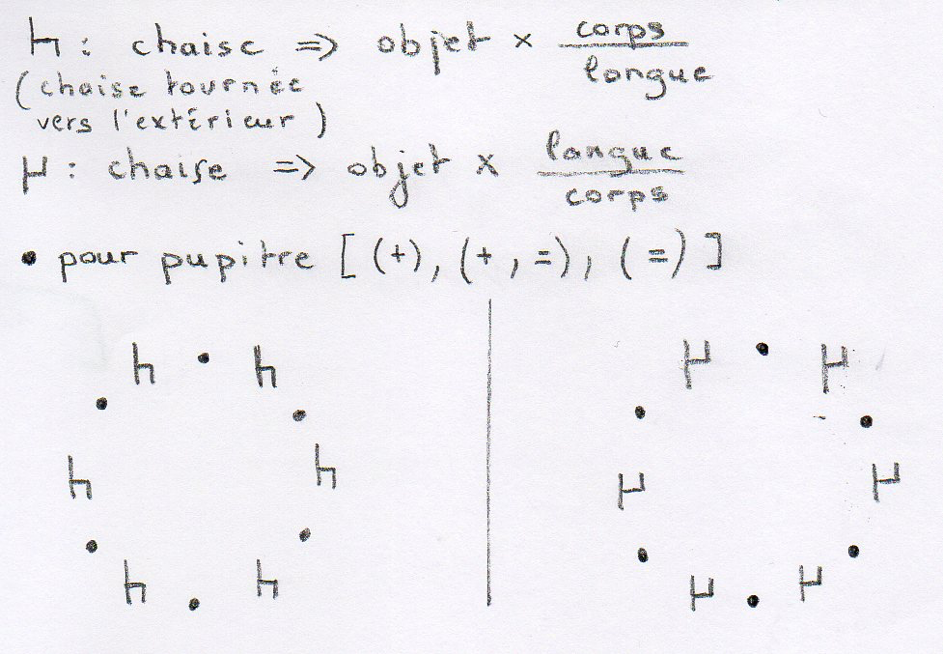 h : chaise => objet × corps / langue
(chaise tournée
vers l'extérieur )
µ : chaise => objet × langue / corps
• pour pupitre [ (+), (+, =), (=) ]
h • h µ • µ
• • • •
h h µ µ
• • • •
h • h µ • µ